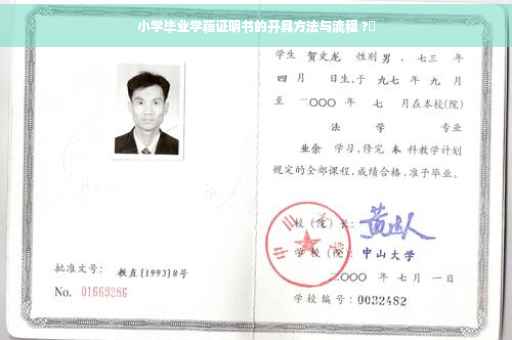 小学毕业学籍证明书的开具方法与流程 ?
学生 贺文龙 性别 男 、七三 年
四 月 日生,于 九七 年 九 月
至 二〇〇〇 年 七 月在本校(院)
法 学 专业
业余 学习,修完 本 科教学计划
规定的全部课程,成绩合格,准予毕业。
校(院)长:
学校(院): 中山大学
二〇〇〇 年 七 月 一 日
学校编号:0032482
批准文号: 教直[1993]8号
No. 01663286